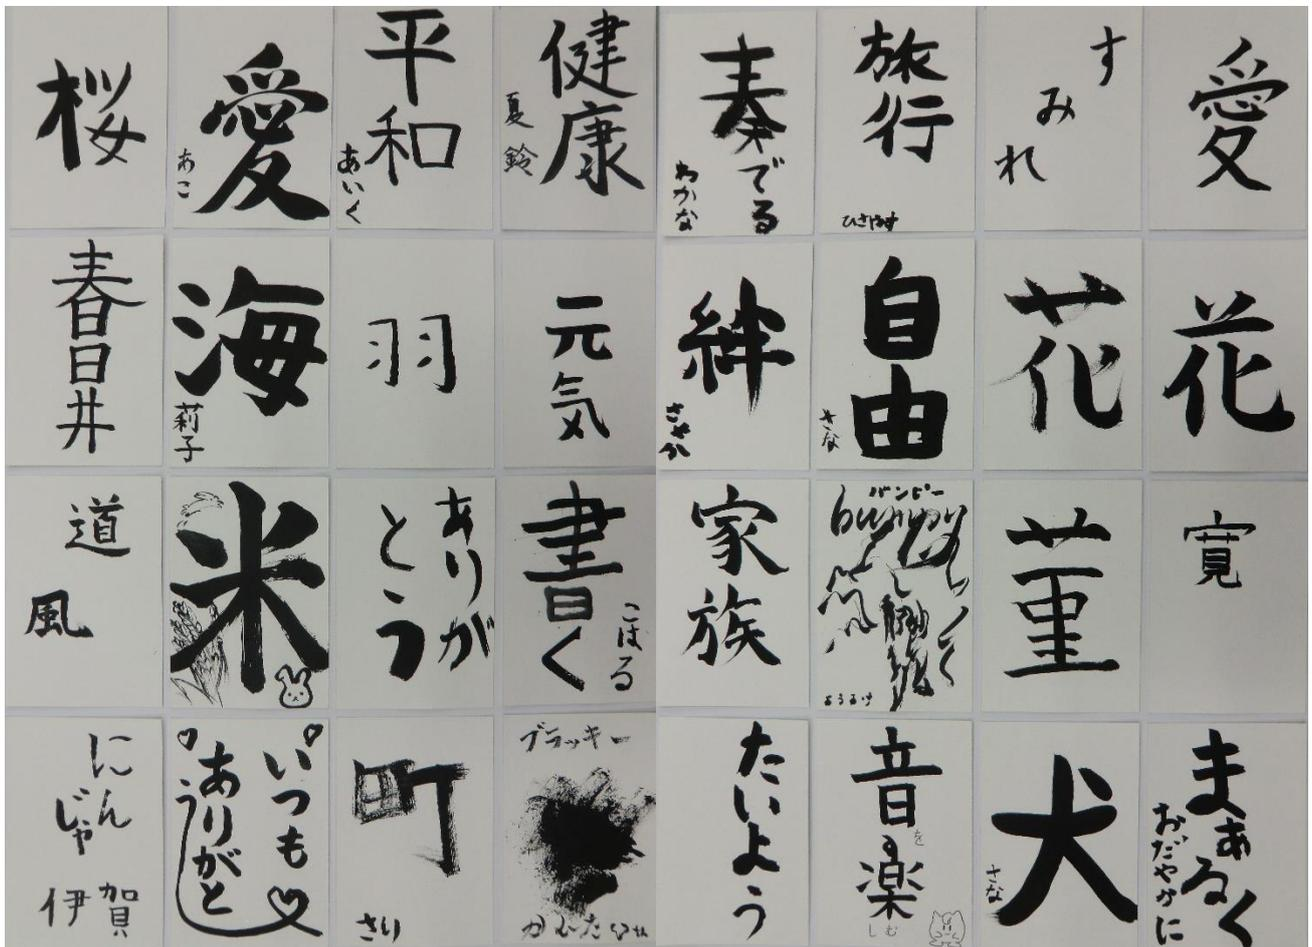 桜
愛
あこ
平和
あいく
健康
夏鈴
奏でる
わかな
旅行
ひさやす
すみれ
愛
春日井
海
莉子
羽
元気
絆
さやか
自由
さな
花
花
道風
米
ありがとう
書く
こはる
家族
バンビー
bunny
ようすけ
菫
寛
にんじゃ
伊賀
いつも
ありがとう
町
さり
ブラッキー
たいよう
音楽
を
しむ
犬
さな
まぁるく
おだやかに